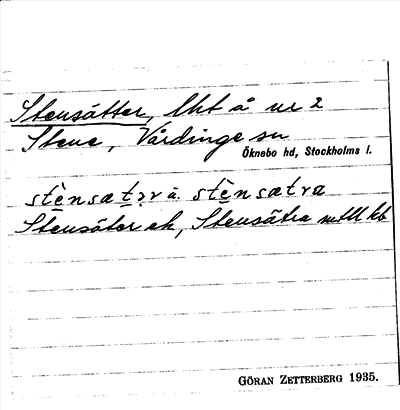 Stensätter, lht å nr 2
Stene, Vårdinge sn
Öknebo hd, Stockholms l.
stènsætər ä. stènsætra
Stensäter ek, Stensätra mtll kb
GÖRAN ZETTERBERG 1935.